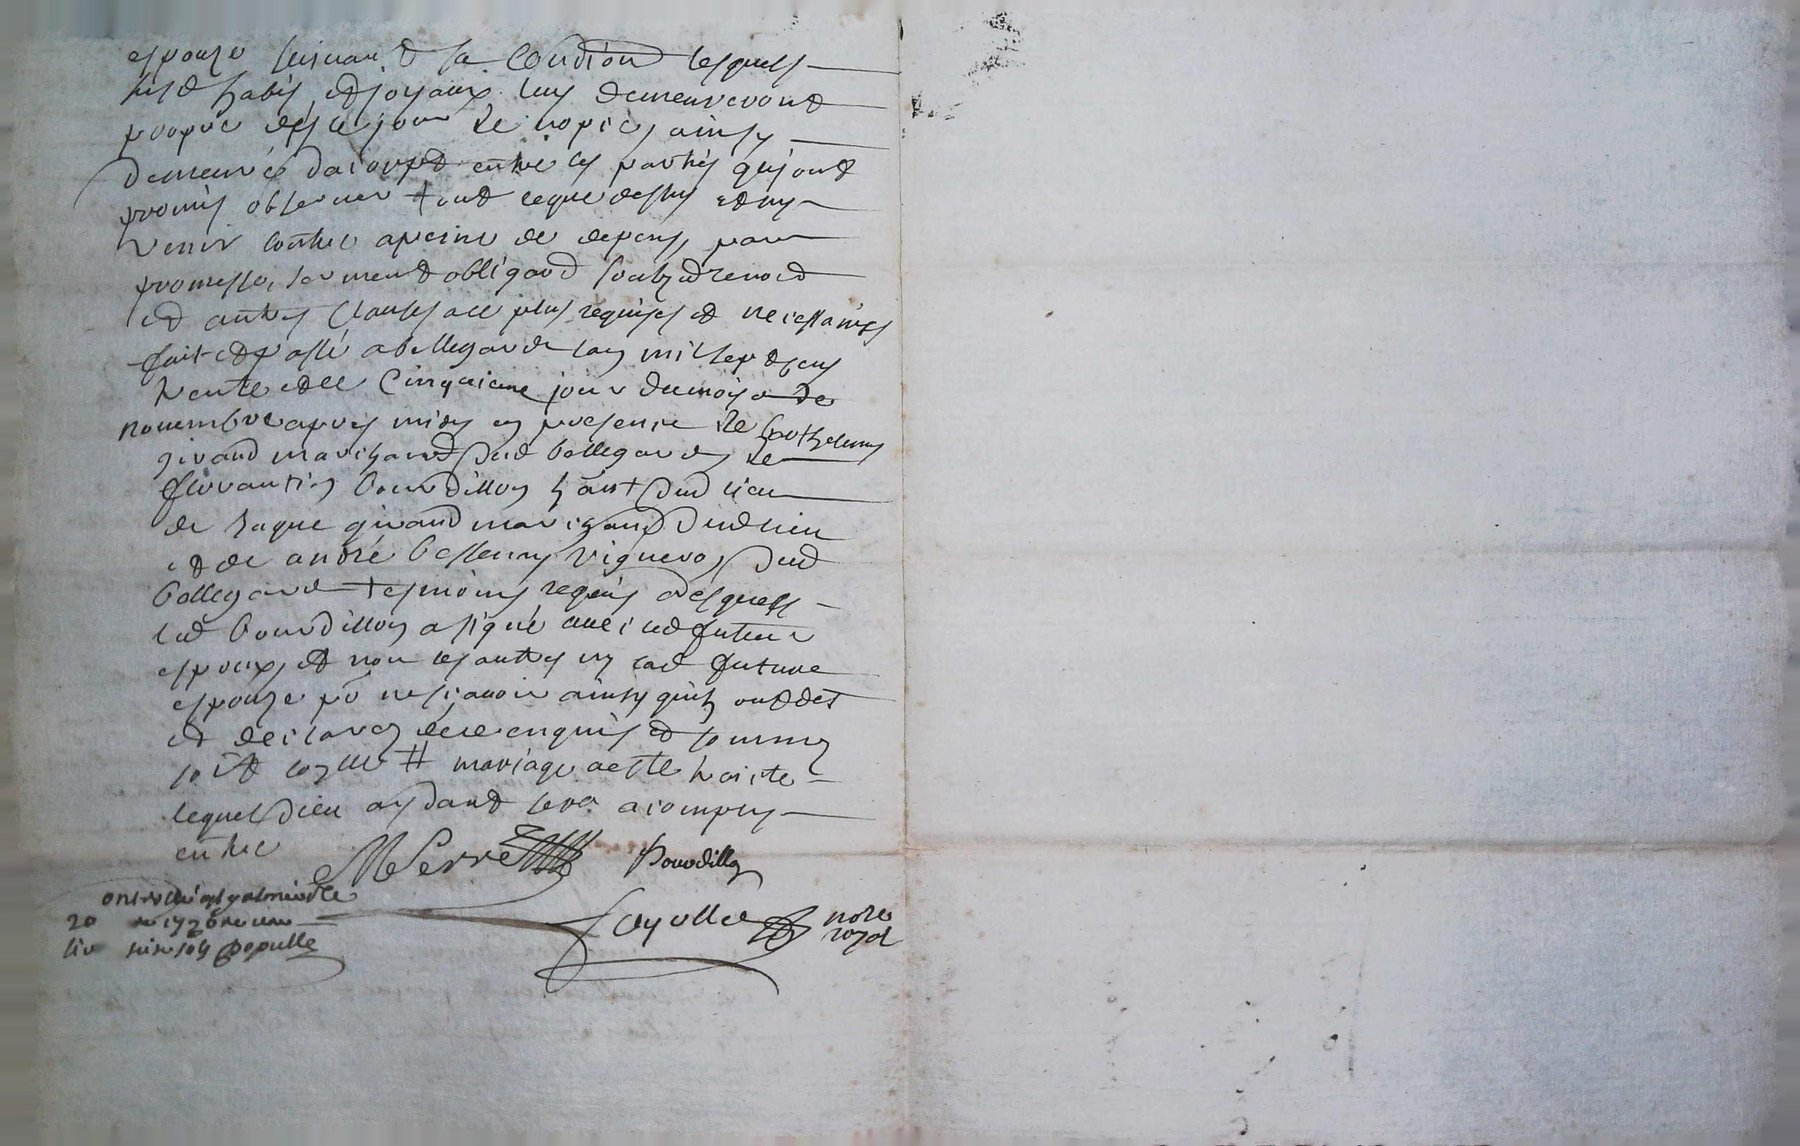 espouze suivant sa condi͠on lesquels
lis d habis et joyaux luy demeureront
propre des ce jour de nopces ainsy
demeuré dacorpd entre les parties qui ont
promis observer tout ce que dessus et ny
venir contre a peine de depens, par
promesse, serment obligaōn soubz renon
et autres clauses a ce plus requises et necessaires
fait et passé a bellegarde lan mil sept cens
trente et le cinquieme jour du mois de
novembre apres midy en presence de barthelemy
girand marchand dud bellegarde, de
fleurantin bourdillon haēt dud lieu
de jaque girand marchand dud lieu
et de andré bessenay vigneron dud
bellegarde tesmoins requis desquels
led bourdillon a signé avec led futeur
espoux, et non les autres ny lad future
espouze pō ne sçavoir ainsy quils ont dit
et declaré de ce enquis et sommé
mariage a esté traicté
lequel Dieu aydant sera acomply
entre
MPerret Bourdillon
Fayolle nore
royal
20
liv